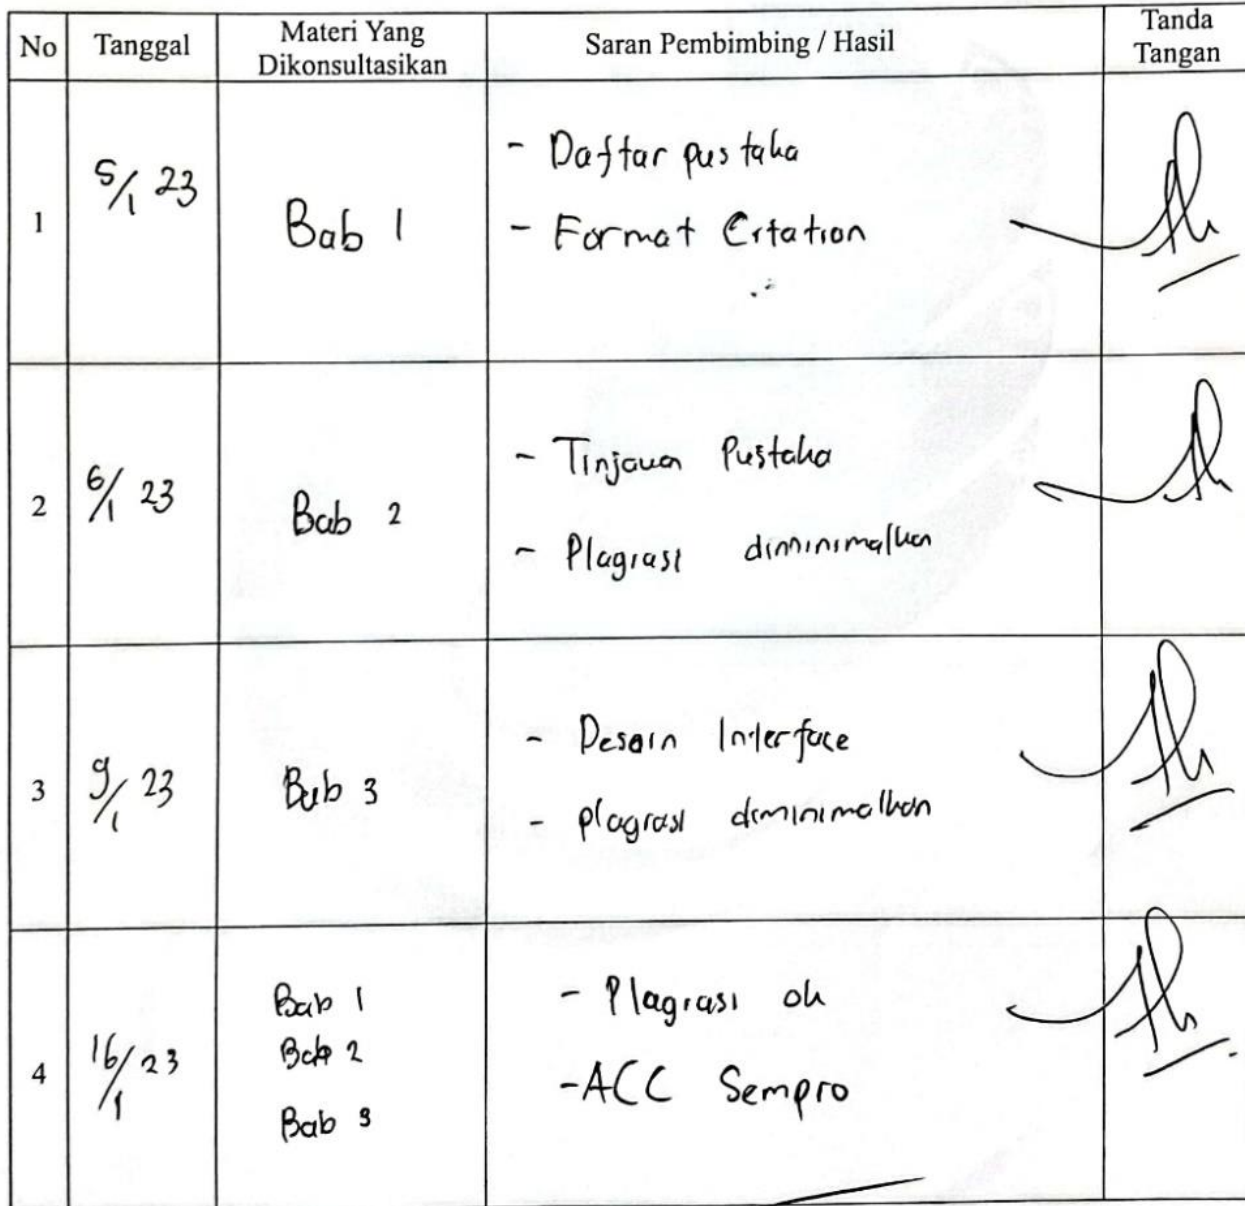 No
Tanggal
Materi Yang
Dikonsultasikan
Saran Pembimbing / Hasil
Tanda
Tangan
1
5/1 23
Bab 1
- Daftar pustaka
- Format Citation
2
6/1 23
Bab 2
- Tinjauan Pustaka
- Plagiasi diminimalkan
3
9/1 23
Bab 3
- Desain Interface
- plagiasi diminimalkan
4
16/1 23
Bab 1
Bab 2
Bab 3
- Plagiasi ok
- ACC Sempro